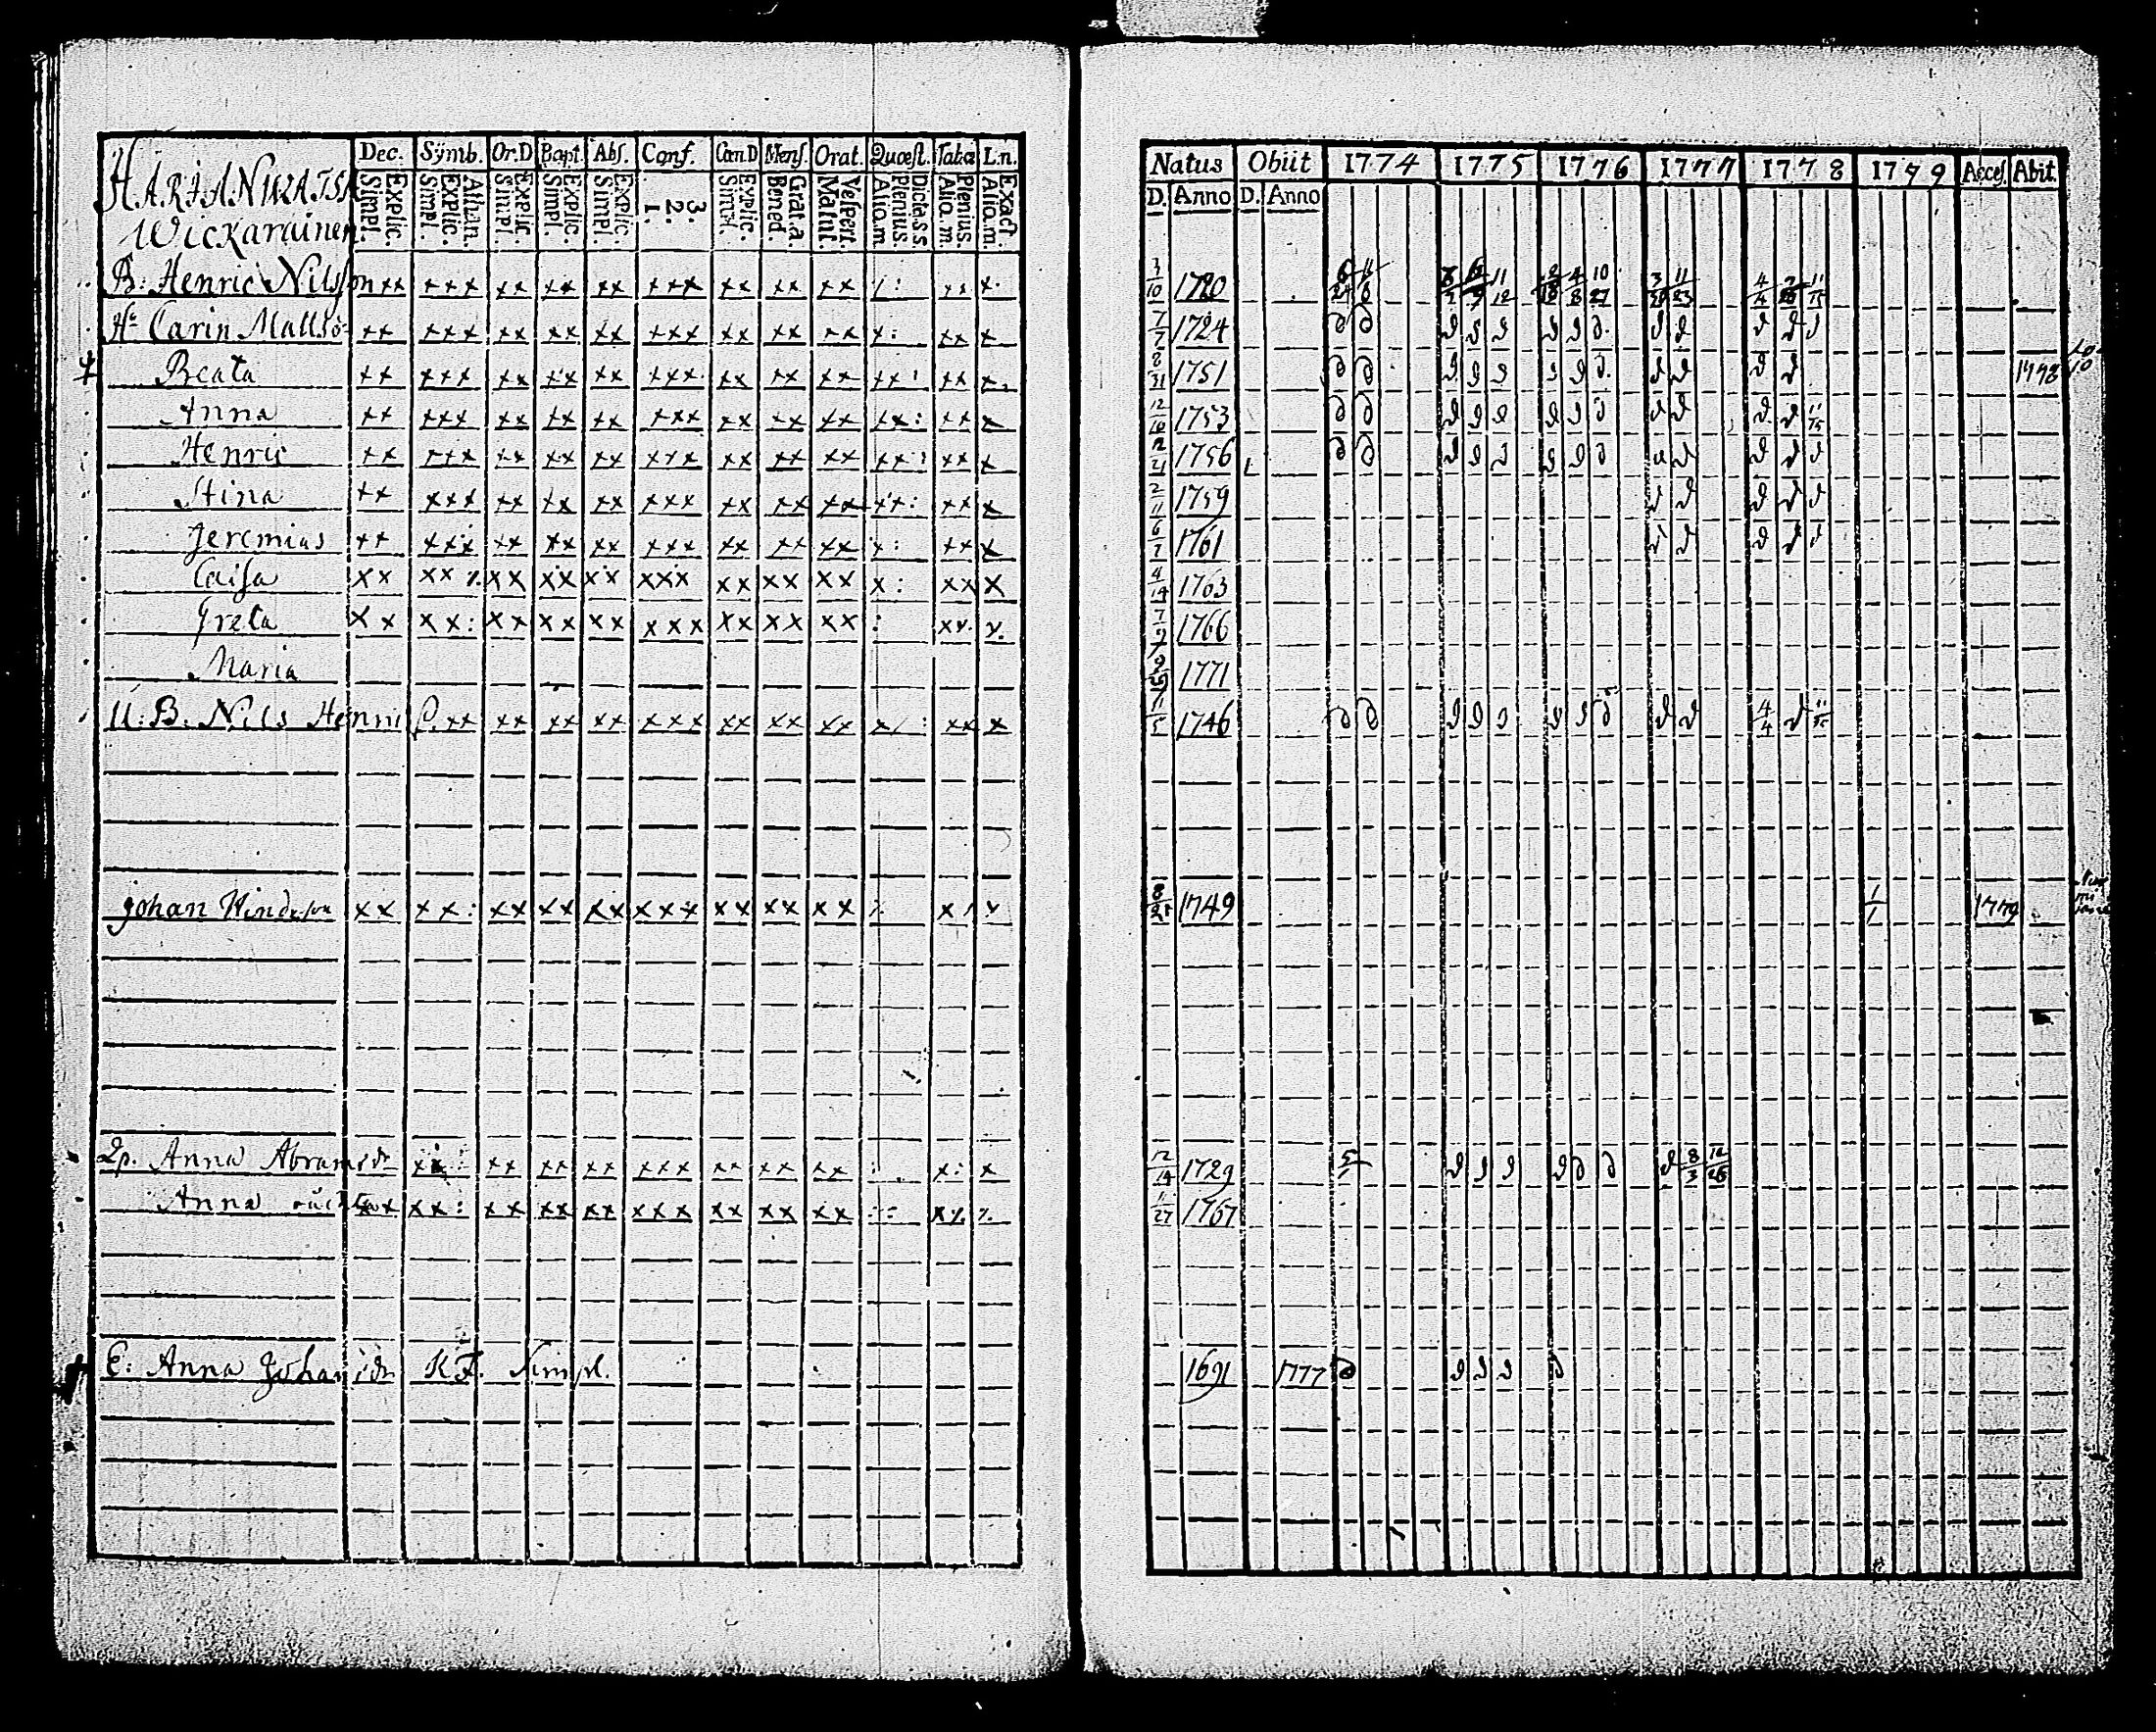 Dec. Sÿmb. Or.D Bapt. Abs. Conf. Can.D Mens. Orat. Quæst. Taba L.n.
HARJANNIKATSI
Wickarainen
Explic. Simpl. Athan. Explic. Simpl. Explic. Simpl. Explic. Simpl. Explic. Simpl. 3. 2. 1. Explic. Simpl. Grat.a. Bened. Vespert. Matut. Dicta s.s Plenius. Alio.m. Plenius. Alio.m. Exact. Alio.m.
B: Henric Nilsson xx xxx xx xx xx xxx xx xx xx /: xx x.
Hu Carin Mattsdr xx xxx xx xx xx xxx xx xx xx x: xx x
Beata xx xxx xx xx xx xxx xx xx xx xx: xx x
Anna xx xxx xx xx xx xxx xx xx xx xx: xx x
Henric xx xxx xx xx xx xxx xx xx xx xx: xx x
Stina xx xxx xx xx xx xxx xx xx xx xx: xx x
Jeremias xx xxx xx xx xx xxx xx xx xx x: xx x
Caisa xx xx xx xx xx xxx xx xx xx x: xx x
Greta xx xx: xx xx xx xxx xx xx xx : xx x
Maria
U: B: Nils Henric S. xx xx xx xx xxx xx xx xx x/: xx x
Johan Hindrson xx xx: xx xx xx xxx xx xx xx x x
Ip. Anna Abramsdr xx: xx xx xx xxx xx xx xx : x: x
Anna xx xx: xx xx xx xxx xx xx xx
E: Anna Johansdr K F. Simpl.
Natus Obiit 1774 1775 1776 1777 1778 1779 Acces. Abit.
D. Anno D. Anno
3/10 1720 6/24 11/6 11/12 4/8 10/27 11/23 4/4 11/15
7/7 1724
8/31 1751 1778
12/10 1753 11/15
12/21 1756
2/11 1759
6/7 1761
4/14 1763
7/9 1766
9/29 1771
11/5 1746 4/4 11/15
8/28 1749 1/1 1779
12/14 1729 8/3 12/26
11/27 1767
1691 1777